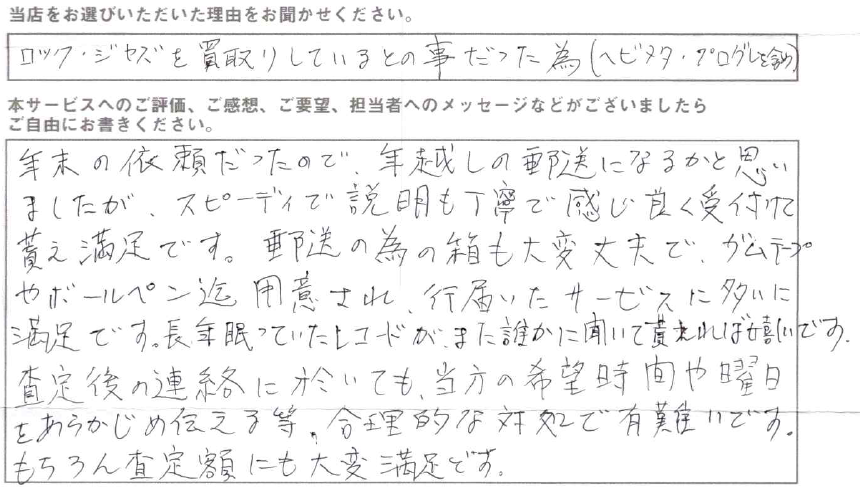 当店をお選びいただいた理由をお聞かせください。
ロック・ジャズを買取りしているとの事だった為(ヘビメタ・プログレを含め)
本サービスへのご評価、ご感想、ご要望、担当者へのメッセージなどがございましたら
ご自由にお書きください。
年末の依頼だったので、年越しの郵送になるかと思い
ましたが、スピーディで説明も丁寧で感じ良く受付けて
貰え満足です。郵送の為の箱も大変丈夫で、ガムテープ
やボールペン迄用意され、行届いたサービスに多いに
満足です。長年眠っていたレコードが、また誰かに聞いて貰えれば嬉しいです。
査定後の連絡に於いても、当方の希望時間や曜日
をあらかじめ伝える等、合理的な対処で有難いです。
もちろん査定額にも大変満足です。